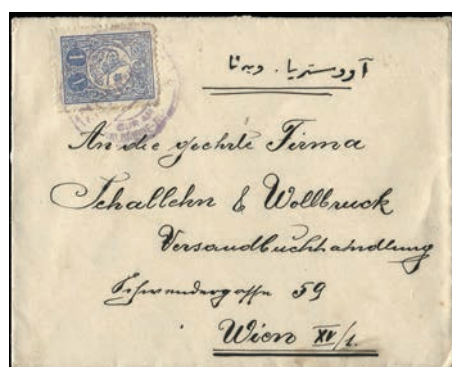 آوستریا. ویه نا
An die geehrte Firma
Schallehn & Wollbruck
Versandbuchhandlung
Schwendergasse 59
Wien XV/1.